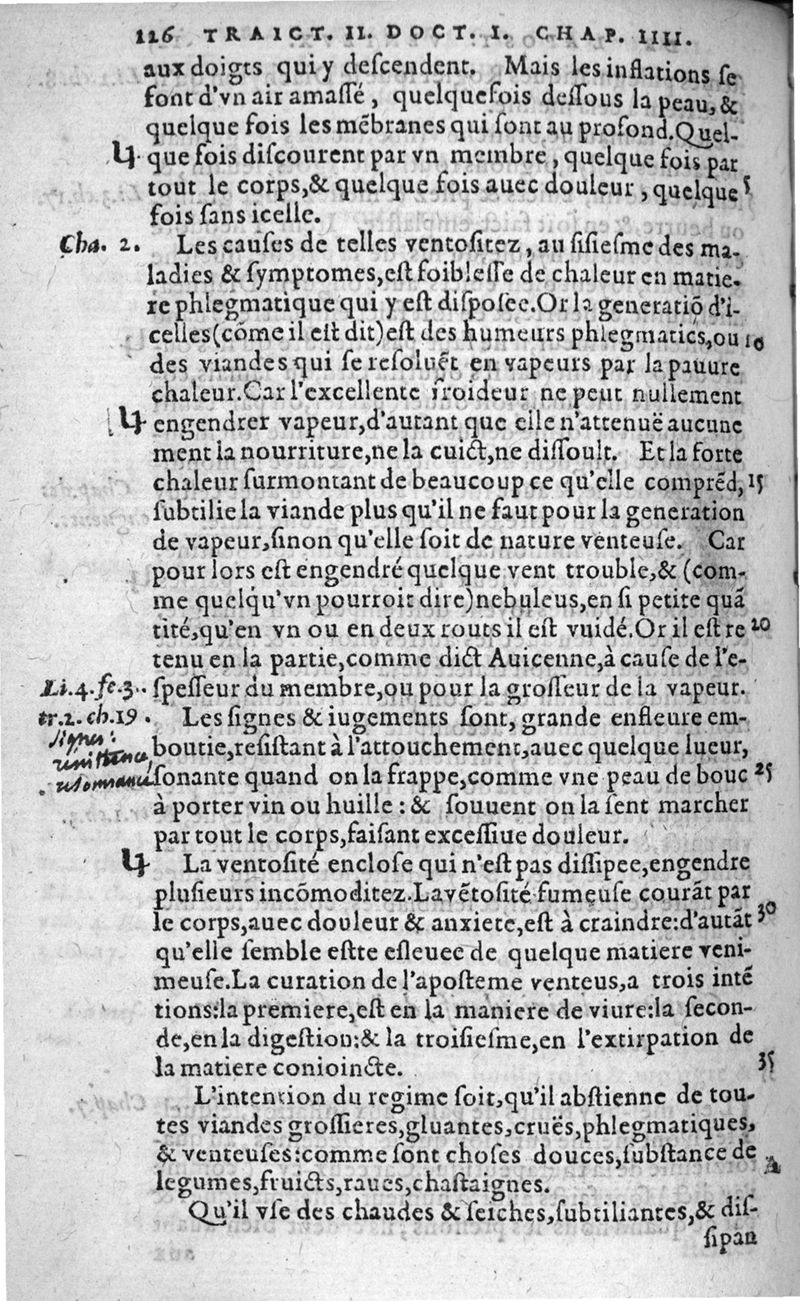 126 TRAICT. II. DOCT. I. CHAP. IIII.
aux doigts qui y deſcendent. Mais les inflations ſe
font d'vn air amaſſé, quelquefois deſſous la peau, &
quelque fois les mẽbranes qui ſont au profond. Quel-
que fois diſcourent par vn membre, quelque fois par
tout le corps, & quelque fois auec douleur, quelque 5
fois ſans icelle.
Cha. 2. Les cauſes de telles ventoſitez, au ſiſieſme des ma-
ladies & ſymptomes, eſt foibleſſe de chaleur en matie-
re phlegmatique qui y eſt diſpoſee. Or la generatiõ d'i-
celles (cõme il eſt dit) eſt des humeurs phlegmatics, ou 10
des viandes qui ſe reſoluẽt en vapeurs par la pauure
chaleur. Car l'excellente froideur ne peut nullement
engendrer vapeur, d'autant que elle n'attenuë aucune
ment la nourriture, ne la cuict, ne diſſoult. Et la forte
chaleur ſurmontant de beaucoup ce qu'elle comprẽd, 15
ſubtilie la viande plus qu'il ne faut pour la generation
de vapeur, ſinon qu'elle ſoit de nature venteuſe. Car
pour lors eſt engendré quelque vent trouble, & (com-
me quelqu'vn pourroit dire) nebuleus, en ſi petite quã
tité, qu'en vn ou en deux routs il eſt vuidé. Or il eſt re 20
tenu en la partie, comme dict Auicenne, à cauſe de l'e-
Li. 4. fe. 3. ſpeſſeur du membre, ou pour la groſſeur de la vapeur.
tr. 2. ch. 19. Les ſignes & iugements ſont, grande enfleure em-
boutie, reſiſtant à l'attouchement, auec quelque lueur,
ſonante quand on la frappe, comme vne peau de bouc 25
à porter vin ou huille : & ſouuent on la ſent marcher
par tout le corps, faiſant exceſſiue douleur.
La ventoſité encloſe qui n'eſt pas diſſipee, engendre
pluſieurs incõmoditez. La vẽtoſité fumeuſe courãt par
le corps, auec douleur & anxiete, eſt à craindre: d'autãt 30
qu'elle ſemble eſtte eſleuee de quelque matiere veni-
meuſe. La curation de l'apoſteme venteus, a trois intẽ
tions: la premiere, eſt en la maniere de viure: la ſecon-
de, en la digeſtion; & la troiſieſme, en l'extirpation de
la matiere conioincte. 35
L'intention du regime ſoit, qu'il abſtienne de tou-
tes viandes groſſieres, gluantes, cruës, phlegmatiques,
& venteuſes: comme ſont choſes douces, ſubſtance de
legumes, fruicts, raues, chaſtaignes.
Qu'il vſe des chaudes & ſeiches, ſubtiliantes, & diſ-
ſipan